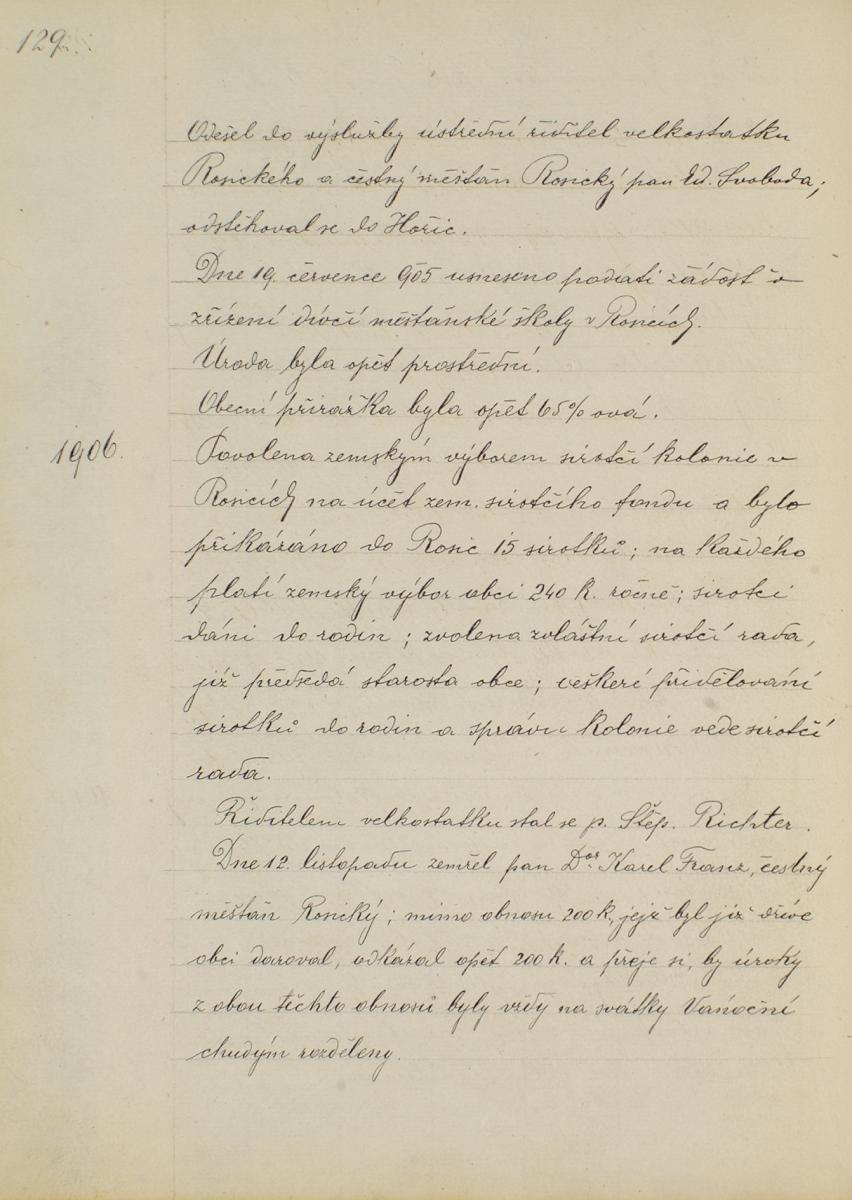 129.
Odešel do výslužby ústřední řiditel velkostatku
Rosického a čestný měštán Rosický pan Ed. Svoboda;
odstěhoval se do Hořic.
Dne 19. července 905 usneseno podati žádost o
zřízení dívčí měštánské školy v Rosicích.
Úroda byla opět prostřední.
Obecní přirážka byla opět 65% ová.
1906.
Povolena zemským výborem sirotčí kolonie v
Rosicích na účet zem. sirotčího fondu a bylo
přikázáno do Rosic 15 sirotků; na každého
platí zemský výbor obci 240 K. ročně; sirotci
dáni do rodin; zvolena zvláštní sirotčí rada,
jíž předsedá starosta obce; veškeré přidělování
sirotků do rodin a správu kolonie vede sirotčí
rada.
Řiditelem velkostatku stal se p. Štěp. Richter.
Dne 12. listopadu zemřel pan Dor. Karel Franz, čestný
měštán Rosický; mimo obnosu 200 K., jejž byl již dříve
obci daroval, odkázal opět 200 K. a přeje si, by úroky
z obou těchto obnosů byly vždy na svátky Vánoční
chudým rozděleny.